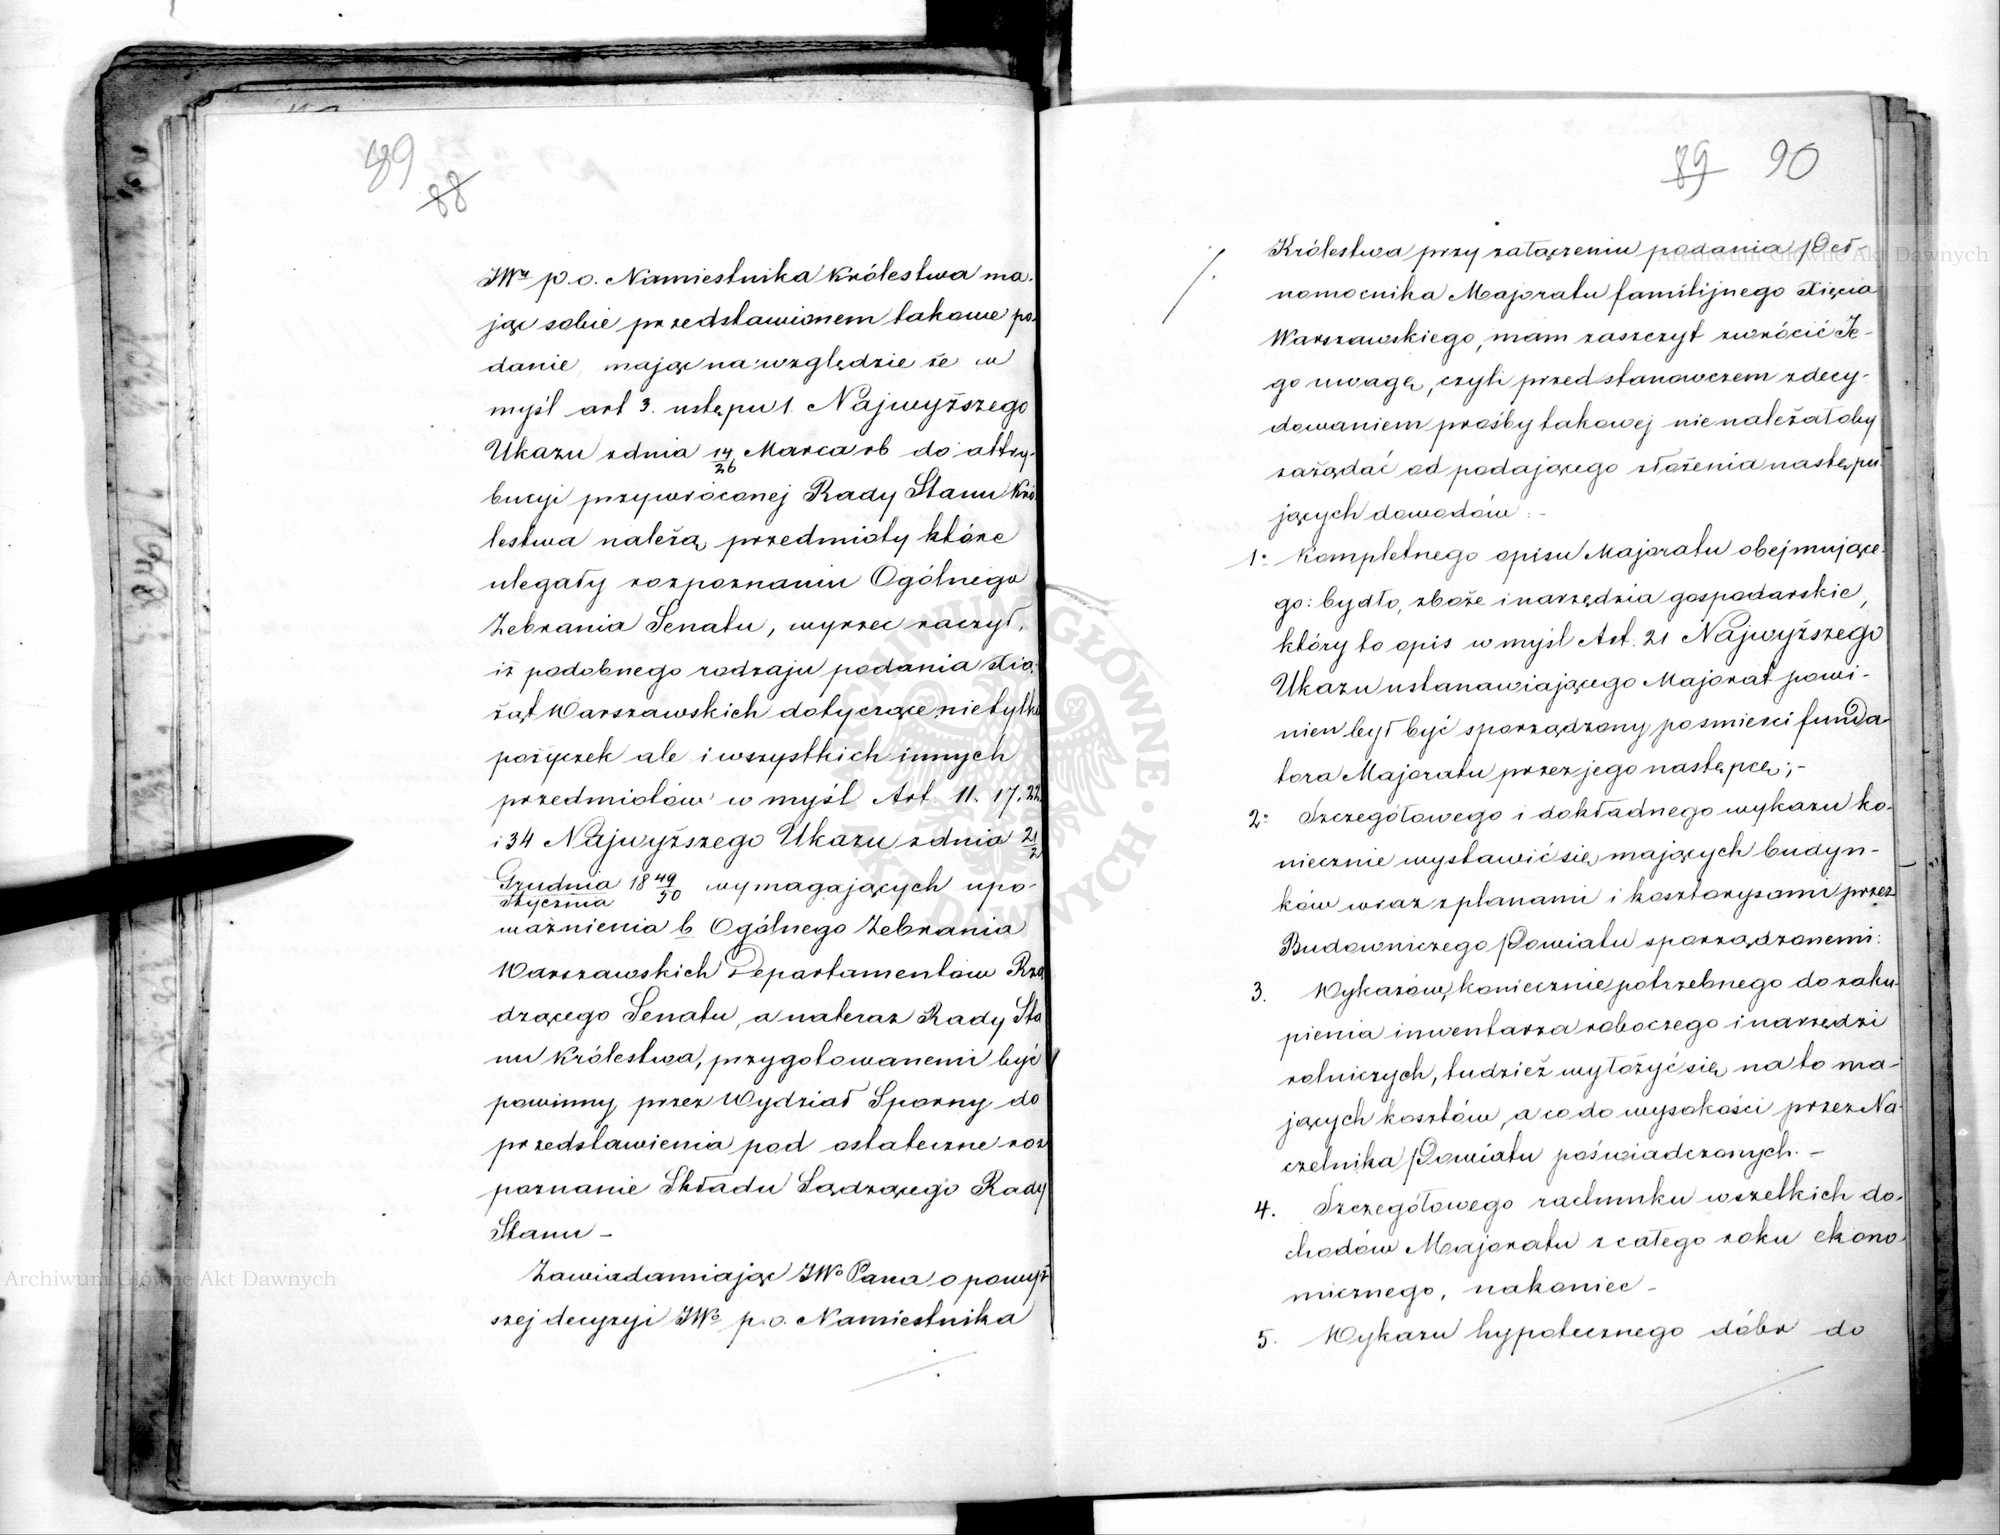 89
88
JWy p.o. Namiestnika Królestwa ma-
jąc sobie przedstawionem takowe po-
danie, mając na względzie że w
myśl art 3. ustępu 1. Najwyższego
Ukazu z dnia 14/26 Marca rb do attry-
bucyi przywróconej Rady Stanu Kró-
lestwa należą przedmioty które
ulegały rozpoznaniu Ogólnego
Zebrania Senatu, wyrzec raczył,
iż podobnego rodzaju podania Xią-
żąt Warszawskich dotyczące nietylko
pożyczek ale i wszystkich innych
przedmiotów w myśl Art. 11. 17. 22.
i 34 Najwyższego Ukazu z dnia 21/2
Grudnia/Stycznia 18 49/50 wymagających upo-
ważnienia b. Ogólnego Zebrania
Warszawskich Departamentów Rzą
dzącego Senatu, a nateraz Rady Sta
nu Królestwa, przygotowanemi być
powinny przez Wydział Sporny do
przedstawienia pod ostateczne roz
poznanie Składu Sądzącego Rady
Stanu –
Zawiadamiając JWo Pana o powyż
szej decyzyi JWo p.o. Namiestnika
89 90
Królestwa przy załączeniu podania Peł-
nomocnika Majoratu familijnego Xięcia
Warszawskiego, mam zaszczyt zwrócić Je-
go uwagę, czyli przed stanowczem zdecy-
dowaniem prośby takowej nie należałoby
zażądać od podającego złożenia następu-
jących dowodów: –
1o Kompletnego opisu Majoratu obejmujące-
go: bydło, zboże i narzędzia gospodarskie,
który to opis w myśl Art. 21 Najwyższego
Ukazu ustanawiającego Majorat powi-
nien był być sporządzony po śmierci funda-
tora Majoratu przez jego następcę; –
2o Szczegółowego i dokładnego wykazu ko-
niecznie wystawić się mających budyn-
ków wraz z planami i kosztorysami przez
Budowniczego Powiatu sporządzonemi:
3. Wykazów, koniecznie potrzebnego do zaku-
pienia inwentarza roboczego i narzędzi
rolniczych, tudzież wyłożyć się na to ma-
jących kosztów, a co do wysokości przez Na-
czelnika Powiatu poświadczonych. –
4. Szczegółowego rachunku wszelkich do-
chodów Majoratu z całego roku ekono-
micznego, nakoniec –
5. Wykazu hypotecznego dóbr do
Archiwum Główne Akt Dawnych
Archiwum Główne Akt Dawnych
ARCHIWUM GŁÓWNE AKT DAWNYCH